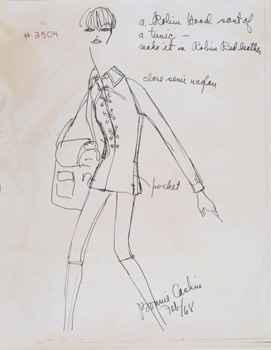 # 2504
a Robin Hood sort of
a tunic —
make it in Robin Red leather
close semi raglan
pocket
Bonnie Cashin
Feb/68